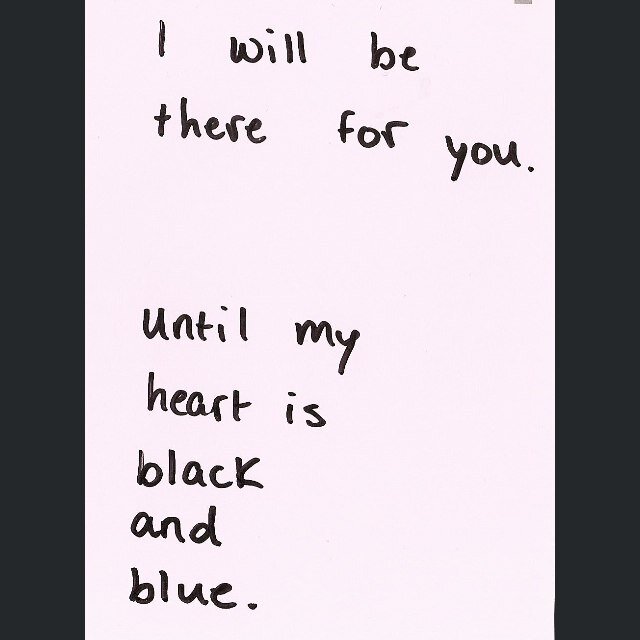 I will be
there for you.
until my
heart is
black
and
blue.